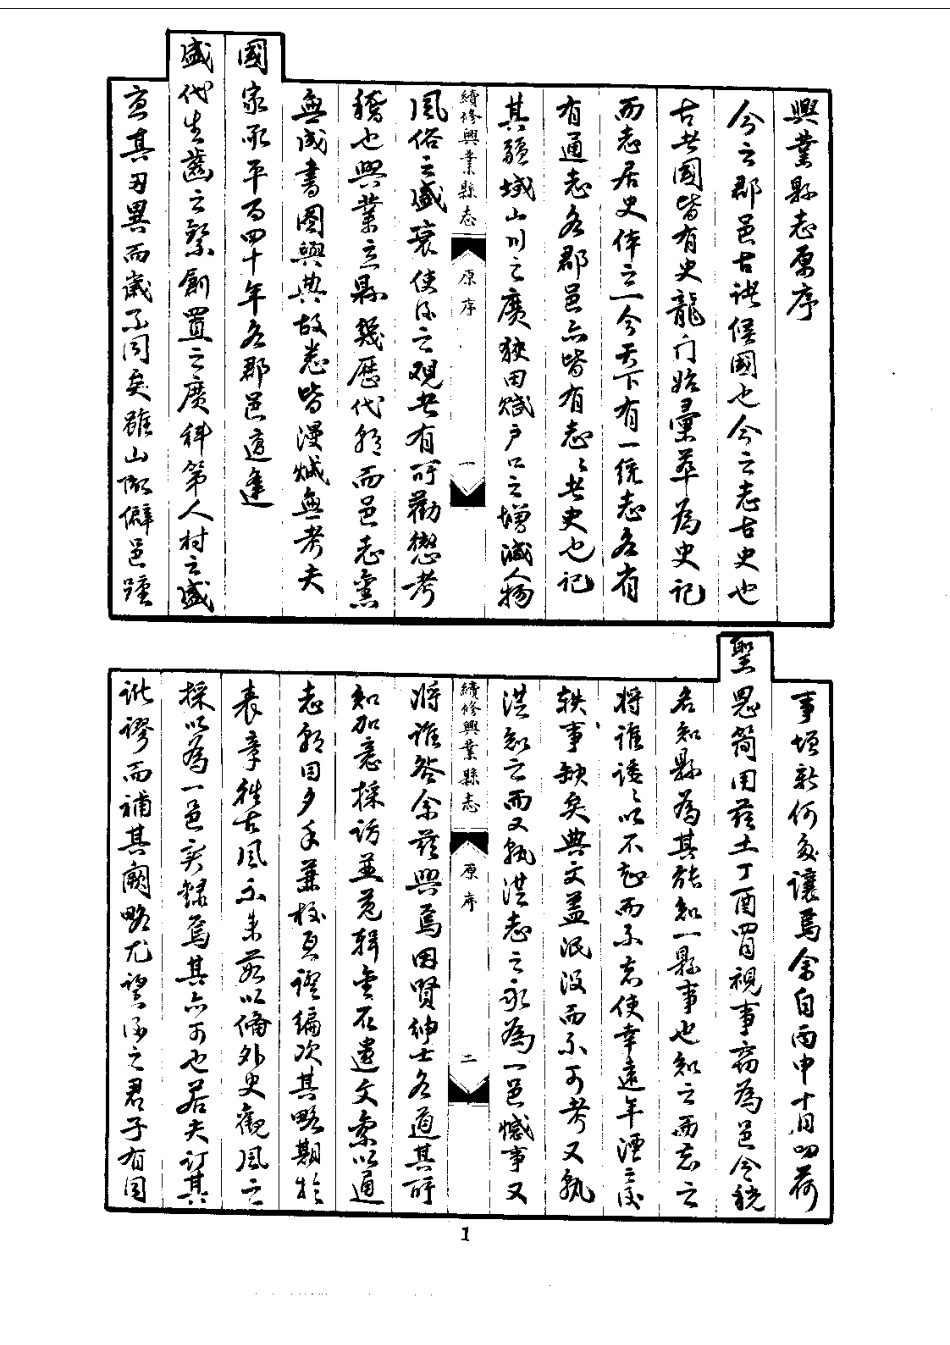 興業縣志原序
今之郡邑古諸侯國也今之志古史也
古者國皆有史龍門始彙萃為史記
而志居史体之一今天下有一統志各省
有通志各郡邑亦皆有志志者史也記
其疆域山川之廣狹田賦户口之增減人物
續修興業縣志
原序
一
風俗之盛衰使後之觀者有所勸懲考
稽也興業立縣幾歷代朝而邑志舊
無成書圖輿典故悉皆漫滅無考夫
國家承平百四十年各郡邑適逢
盛代生齒之繁創置之廣科第人材之盛
亦其日異而歲不同矣雖山陬僻邑踵
事增新何多讓焉余自丙申十月叨荷
聖恩簡用茲土丁酉四月視事竊為邑令稱
名知縣為其能知一縣事也知之而志之
將誰諉諉以不知而不志使幸遠年湮後
軼事缺矣典文蓋泯没而不可考又孰
從知之而又孰從志之永為一邑憾事又
續修興業縣志
原序
二
將誰咎余茲興焉因賢紳士各道其所
知加意採訪並蒐輯金石遺文彙以通
志朝目夕手兼校更證編次其略期於
表章往古風示來茲以備外史觀風之
採以為一邑實録焉其亦可也若夫訂其
訛謬而補其闕略尤望後之君子有同
1